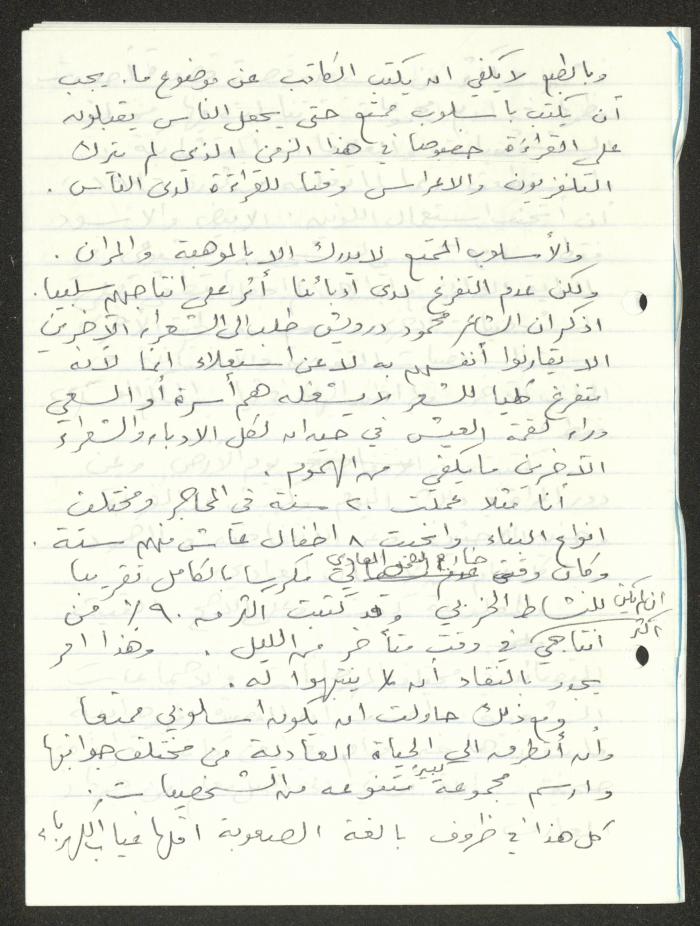 وبالطبع لا يكفي ان يكتب الكاتب عن موضوع ما. يجب
أن يكتب باسلوب ممتع حتى يجعل الناس يقبلون
على القراءة خصوصا في هذا الزمن الذي لم يترك
التلفزيون والاعراس وقتا للقراءة لدى الناس.
والأسلوب الممتع لا يدرك الا بالموهبة والمران.
ولكن عدم التفرغ لدى أدبائنا أثر على انتاجهم سلبيا.
اذكر ان الشاعر محمود درويش طلب الى الشعراء الآخرين
الا يقارنوا أنفسهم به لا عن استعلاء انما لأنه
متفرغ كليا للشعر لا يشغله هم أسرة أو السعي
وراء لقمة العيش في حين ان لكل الادباء والشعراء
الآخرين ما يكفي من الهموم.
أنا مثلا عملت ٢٠ سنة في المحاجر ومختلف
انواع البناء وانجبت ٨ اطفال عاش منهم ستة.
وكان وقتي خارج العمل العادي مكرسا بالكامل تقريبا
للنشاط الحزبي وقد كتبت اكثر من ٩٠٪ من
ان لم يكن اكثر
انتاجي في وقت متأخر من الليل. وهذا امر
يجدر بالنقاد أن ينتبهوا له.
ومع ذلك حاولت ان يكون اسلوبي ممتعا
وأن أتطرق الى الحياة العادية من مختلف جوانبها
وارسم مجموعة كبيرة متنوعه من الشخصيات.
كل هذا في ظروف بالغة الصعوبة اقلها غياب الكهرباء